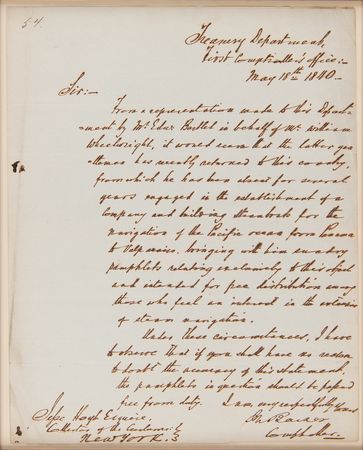 54.
Treasury Department,
First Comptroller's Office:-
May 18th 1840.
Sir:-
From a representation made to this Depart-
ment by Mr. Edwr Bartlet in behalf of Mr. William
Wheelwright, it would seem that the latter gen-
tleman has recently returned to this country,
from which he has been absent for several
years engaged in the establishment of a
company and building steamboats for the
navigation of the Pacific ocean from Panama
to Valparaiso, bringing with him sundry
pamphlets relating exclusively to this object
and intended for free distribution among
those who feel an interest in the extension
of steam navigation.
Under these circumstances, I have
to observe that if you shall have no reason
to doubt the accuracy of this statement,
the pamphlets in question should be passed
free from duty. I am, very respectfully, yours
Barker
Comptroller.
Jesse Hoyt Esquire,
Collector of the Customs:
New York.